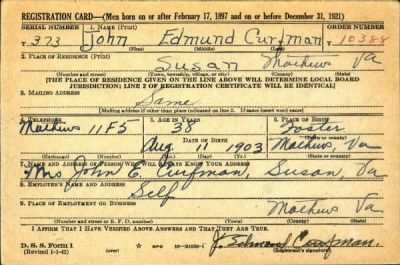 REGISTRATION CARD—(Men born on or after February 17, 1897 and on or before December 31, 1921)
SERIAL NUMBER 1. NAME (Print) ORDER NUMBER
T 373 John Edmund Curfman 10388
(First) (Middle) (Last)
2. PLACE OF RESIDENCE (Print)
Susan Mathews Va
(Number and street) (Town, township, village, or city) (County) (State)
[THE PLACE OF RESIDENCE GIVEN ON THE LINE ABOVE WILL DETERMINE LOCAL BOARD
JURISDICTION; LINE 2 OF REGISTRATION CERTIFICATE WILL BE IDENTICAL]
3. MAILING ADDRESS
Same
[Mailing address if other than place indicated on line 2. If same insert word same]
4. TELEPHONE 5. AGE IN YEARS 6. PLACE OF BIRTH
Mathews 11F5 38 Foster
DATE OF BIRTH (Town or county)
Aug. 11 1903 Mathews, Va
(Mo.) (Day) (Yr.) (State or country)
7. NAME AND ADDRESS OF PERSON WHO WILL ALWAYS KNOW YOUR ADDRESS
Mrs John E. Curfman, Susan, Va
8. EMPLOYER'S NAME AND ADDRESS
Self
9. PLACE OF EMPLOYMENT OR BUSINESS
Mathews Va
(Number and street or R. F. D. number) (Town) (County) (State)
I AFFIRM THAT I HAVE VERIFIED ABOVE ANSWERS AND THAT THEY ARE TRUE.
D. S. S. Form 1
(Revised 1-1-42) J. Edmund Curfman.
(Registrant's signature)